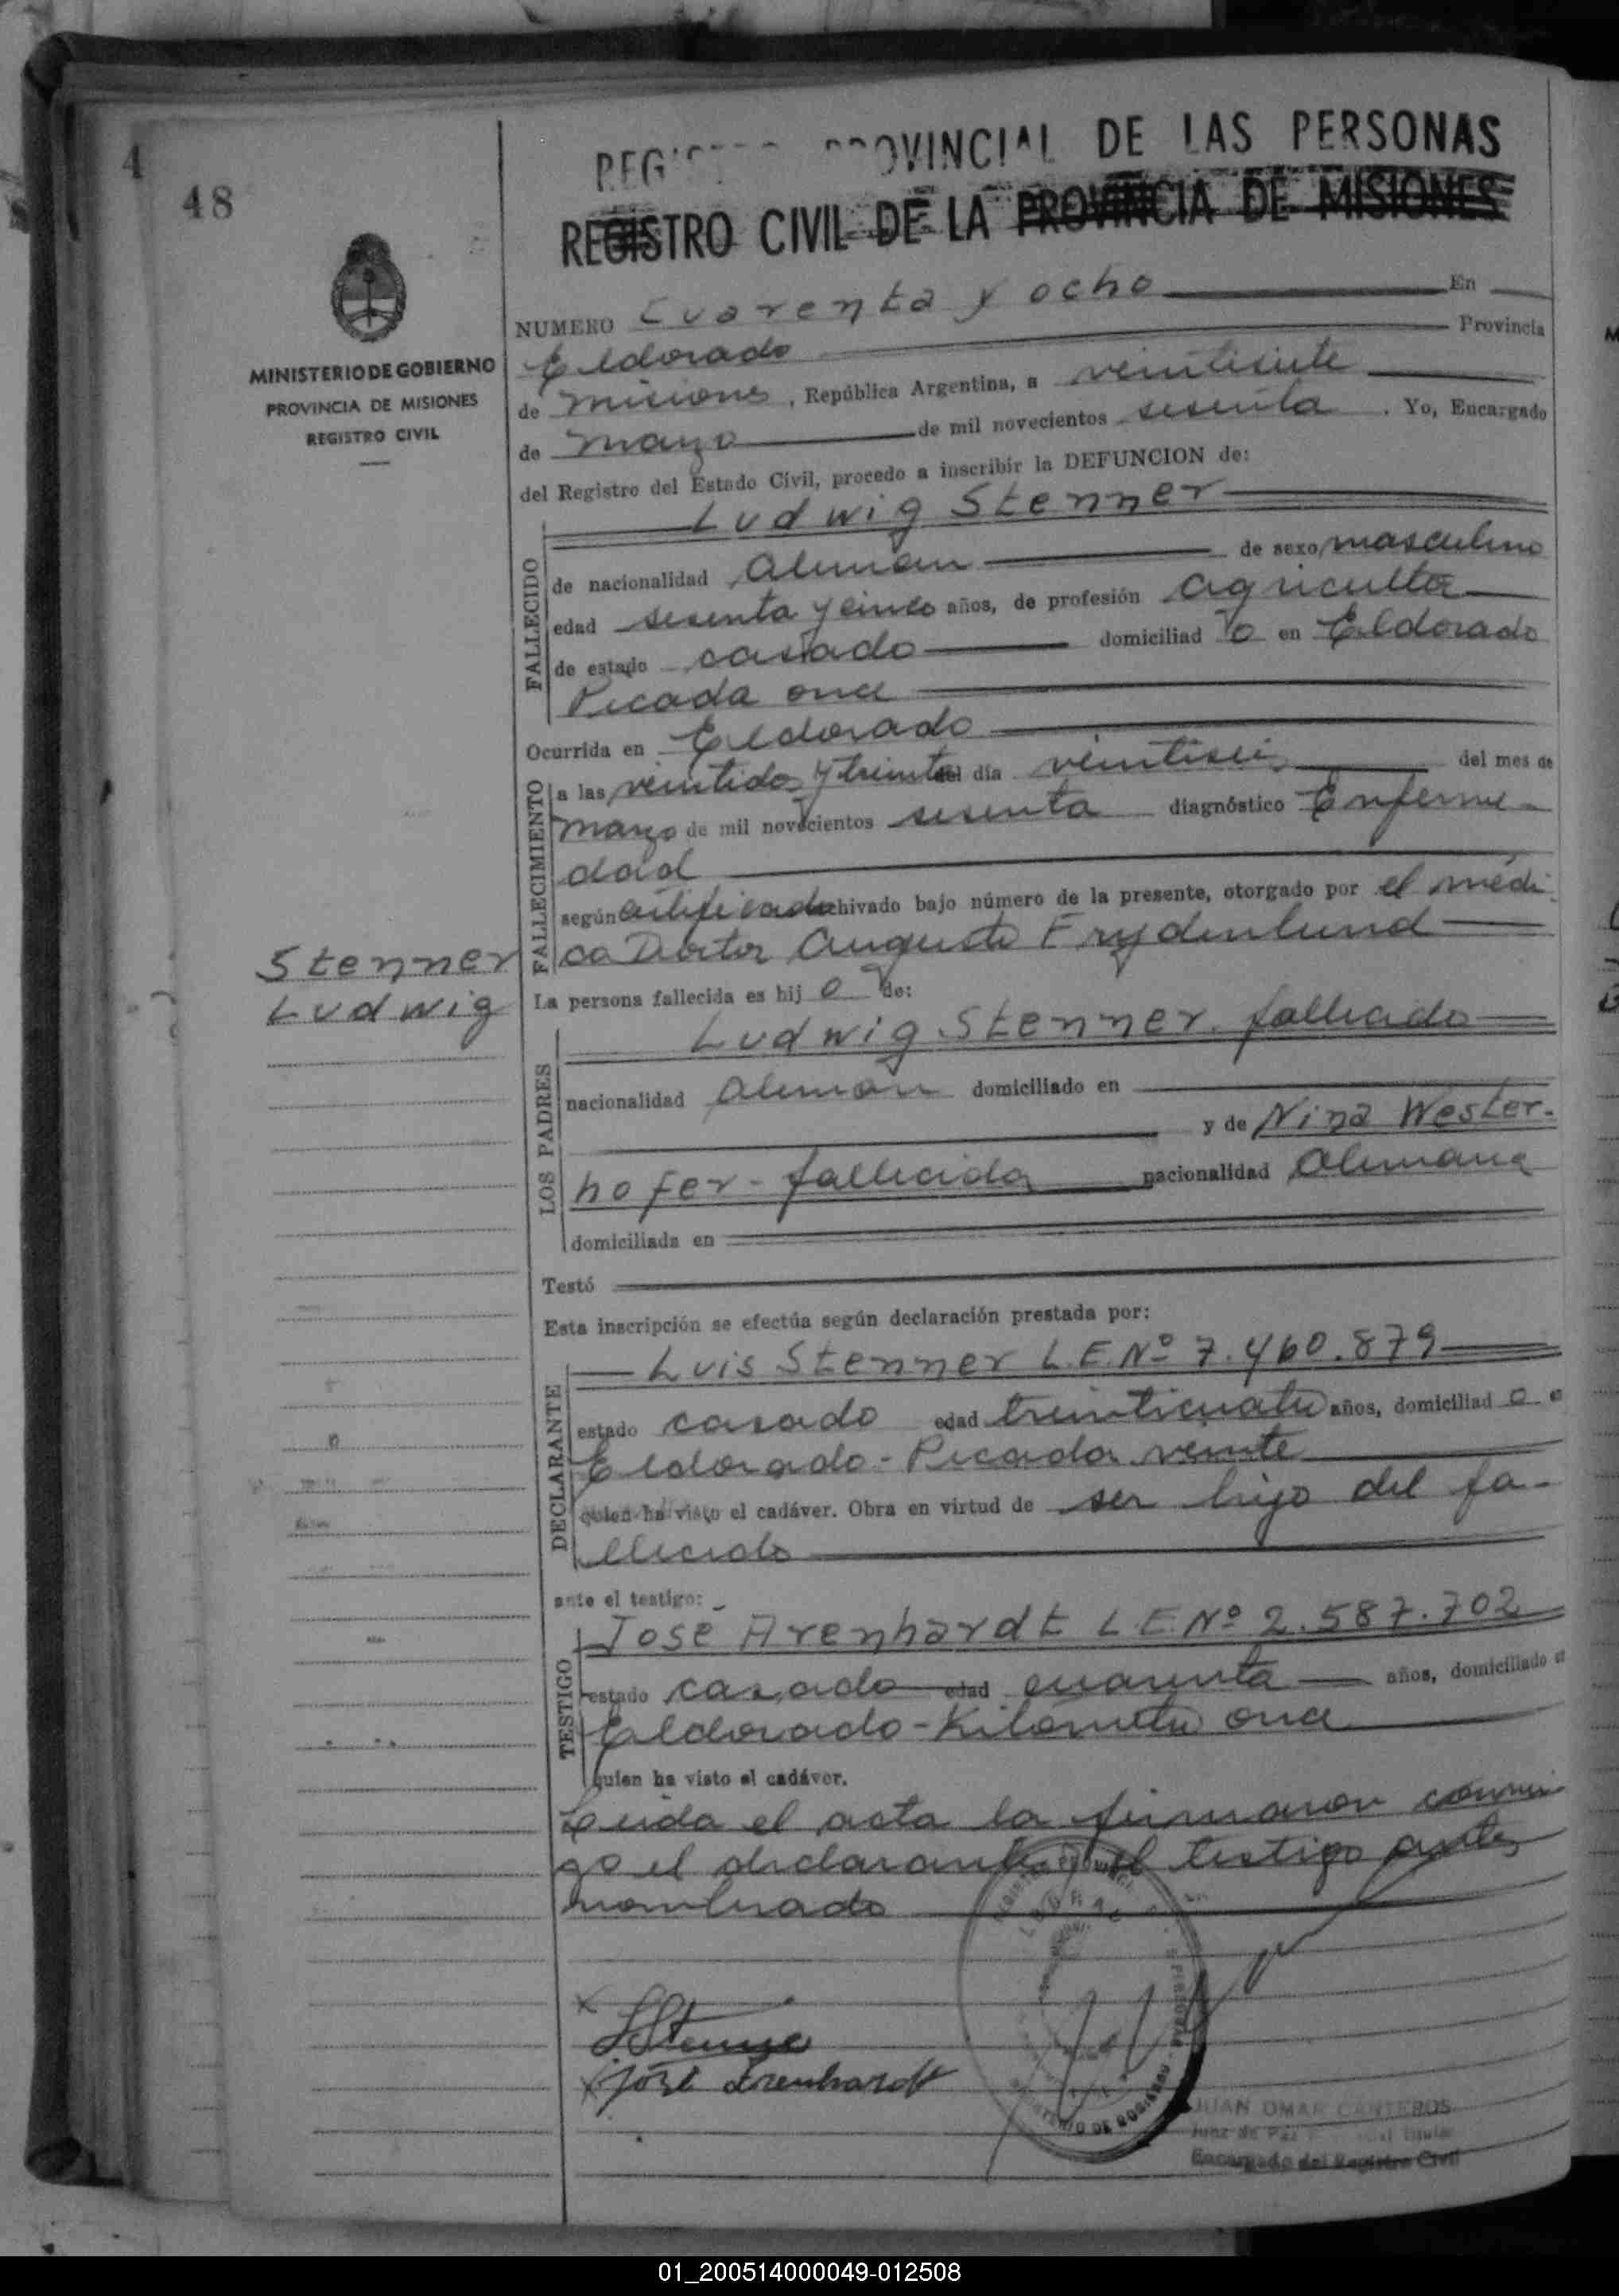 4
48
MINISTERIO DE GOBIERNO
PROVINCIA DE MISIONES
REGISTRO CIVIL
PROVINCIAL DE LAS PERSONAS
REGISTRO CIVIL DE LA PROVINCIA DE MISIONES
NUMERO Cuarenta y ocho En
Eldorado Provincia
de Misiones, República Argentina, a veintisiete
de marzo de mil novecientos sesenta. Yo, Encargado
del Registro del Estado Civil, procedo a inscribir la DEFUNCION de:
Ludwig Stenner
FALLECIDO
de nacionalidad Alemán de sexo masculino
edad sesenta y cinco años, de profesión agricultor
de estado casado domiciliad o en Eldorado
Picada once
Ocurrida en Eldorado
FALLECIMIENTO
a las veintidos y treinta del día veintiseis del mes de
marzo de mil novecientos sesenta diagnóstico Enferme-
dad
según certificado archivado bajo número de la presente, otorgado por el médi-
co Doctor Augusto Frydenlund
Stenner
Ludwig
La persona fallecida es hij o de:
Ludwig Stenner. fallecido
LOS PADRES
nacionalidad Alemán domiciliado en
y de Nina Wester-
hofer - fallecida nacionalidad Alemana
domiciliada en
Testó
Esta inscripción se efectúa según declaración prestada por:
Luis Stenner L.E.Nº 7.460.879
DECLARANTE
estado casado edad treinticuatro años, domiciliad o e
Eldorado - Picada veinte
quien ha visto el cadáver. Obra en virtud de ser hijo del fa-
llecido
ante el testigo:
José Arenhardt L.E.Nº 2.587.702
TESTIGO
estado casado edad cuarenta años, domiciliado e
Eldorado - Kilometro once
quien ha visto el cadáver.
Leida el acta la firmaron conmi
go el declarante y el testigo antes
nombrado
x
LStenner
x José Arenhardt
MINISTERIO DE GOBIERNO
JUAN OMAR CANTEROS
Juez de Paz
Encargado del Registro Civil
01_200514000049-012508